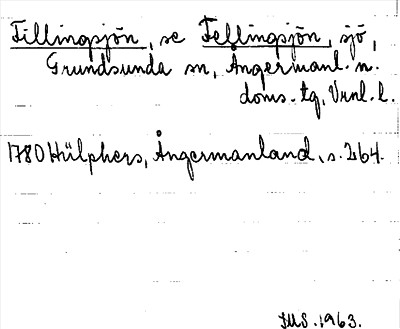 Fillingsjön, se Fellingsjön, sjö,
Grundsunda sn, Ångermanl. n.
doms. tg, Vrnl. l.
1780 Hülphers, Ångermanland, s. 264.
IMS. 1963.